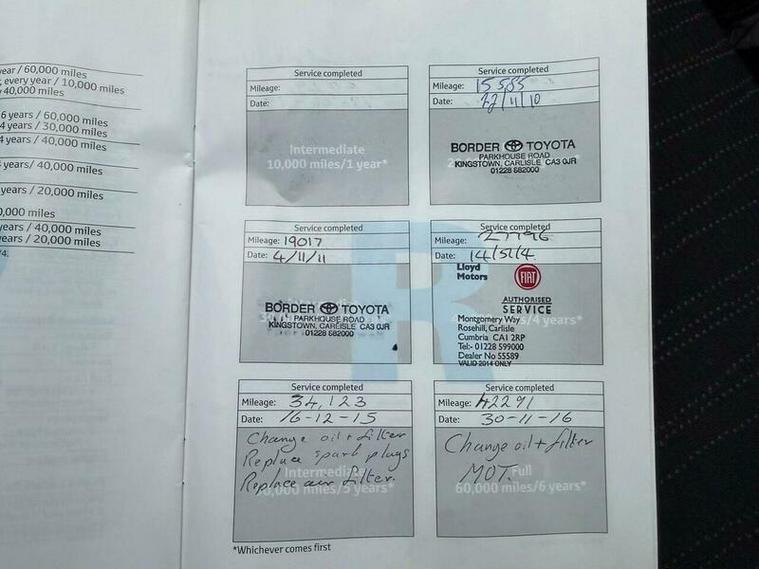 year / 60,000 miles
every year / 10,000 miles
40,000 miles
6 years / 60,000 miles
4 years / 30,000 miles
4 years / 40,000 miles
years/ 40,000 miles
years / 20,000 miles
0,000 miles
years / 40,000 miles
years / 20,000 miles
Service completed
Mileage:
Date:
Intermediate
10,000 miles/1 year*
Service completed
Mileage: 15555
Date: 22/11/10
BORDER TOYOTA
PARKHOUSE ROAD
KINGSTOWN, CARLISLE CA3 0JR
01228 882000
Service completed
Mileage: 19017
Date: 4/11/11
BORDER TOYOTA
PARKHOUSE ROAD
KINGSTOWN, CARLISLE CA3 0JR
01228 882000
Service completed
Mileage: 27796
Date: 14/5/14.
Lloyd
Motors
FIAT
AUTHORISED
SERVICE
Montgomery Way
Rosehill, Carlisle
Cumbria CA1 2RP
Tel:- 01228 599000
Dealer No 55589
VALID 2014 ONLY
s/4 years*
Service completed
Mileage: 34,123
Date: 16-12-15
Change oil + filter
Replace spark plugs
Replace air filter.
Intermediate
50,000 miles/5 years*
Service completed
Mileage: 42291
Date: 30-11-16
Change oil + filter
MOT.
Full
60,000 miles/6 years*
*Whichever comes first
R